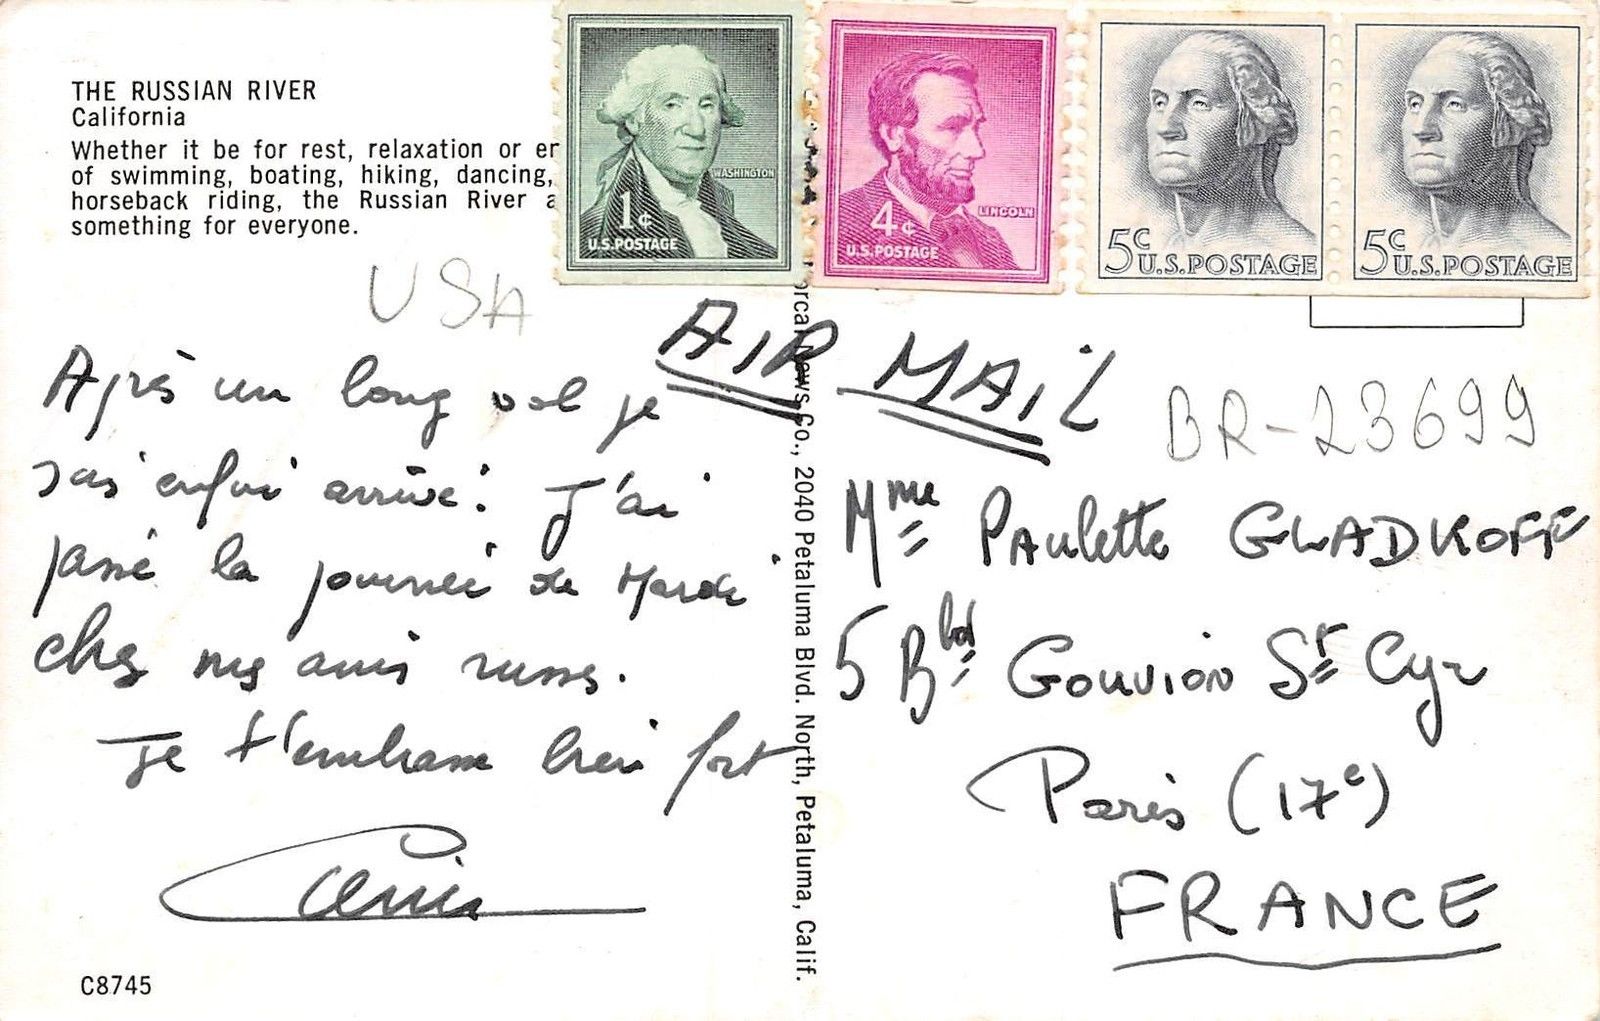 THE RUSSIAN RIVER
California
Whether it be for rest, relaxation or er
of swimming, boating, hiking, dancing,
horseback riding, the Russian River a
something for everyone.
WASHINGTON
1¢
U.S. POSTAGE
LINCOLN
4¢
U.S. POSTAGE
5c
U.S. POSTAGE
5c
U.S. POSTAGE
USA
AIR MAIL
BR-23699
Après un long vol je
suis enfin arrivé. J'ai
passé la journée de Mardi
chez mes amis russes.
Je t'embrasse bien fort
orcal News Co., 2040 Petaluma Blvd. North, Petaluma, Calif.
Mme Paulette GLADKOFF
5 Bld Gouvion St Cyr
Paris (17e)
FRANCE
C8745